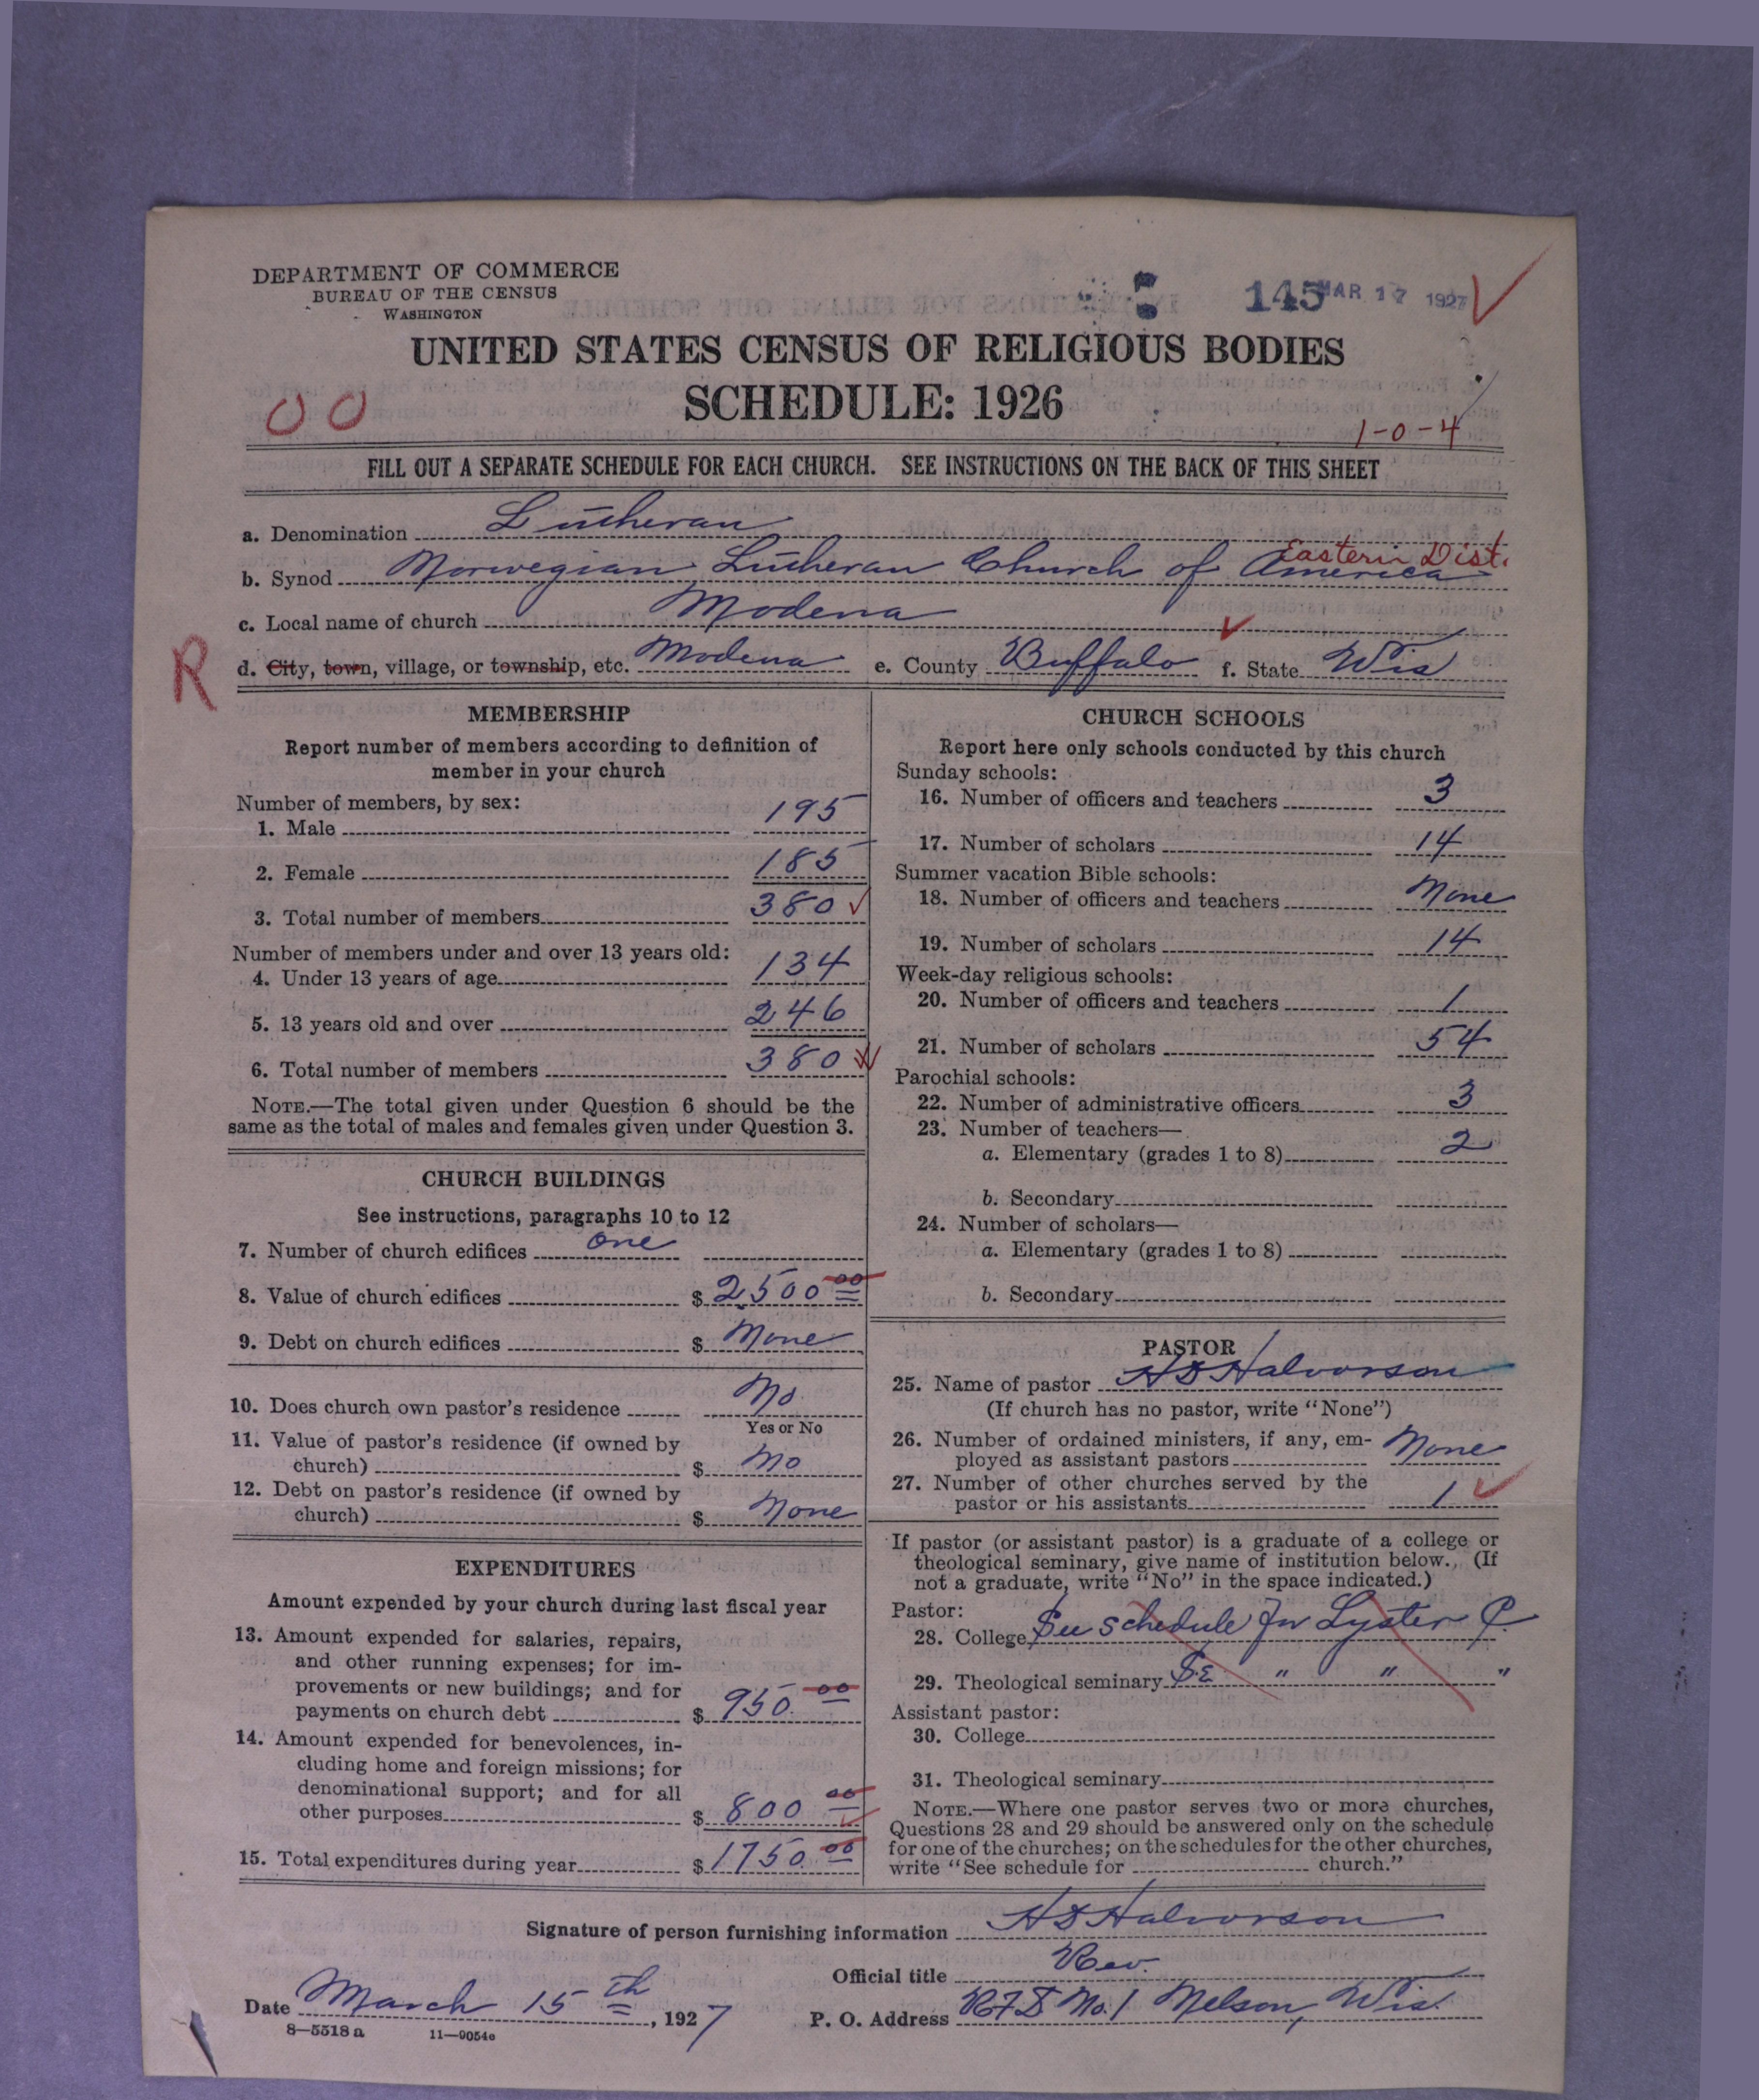 DEPARTMENT OF COMMERCE
BUREAU OF THE CENSUS
WASHINGTON
145
MAR 17 1927
UNITED STATES CENSUS OF RELIGIOUS BODIES
SCHEDULE: 1926
00
1-0-4
FILL OUT A SEPARATE SCHEDULE FOR EACH CHURCH. SEE INSTRUCTIONS ON THE BACK OF THIS SHEET
a. Denomination Lutheran
Eastern Dist.
b. Synod Norwegian Lutheran Church of America
c. Local name of church Modena
R
d. City, town, village, or township, etc. Modena e. County Buffalo f. State Wis
MEMBERSHIP
Report number of members according to definition of
member in your church
Number of members, by sex:
1. Male 195
2. Female 185
3. Total number of members 380
Number of members under and over 13 years old:
4. Under 13 years of age 134
5. 13 years old and over 246
6. Total number of members 380
NOTE.—The total given under Question 6 should be the
same as the total of males and females given under Question 3.
CHURCH BUILDINGS
See instructions, paragraphs 10 to 12
7. Number of church edifices one
8. Value of church edifices $ 2500 00
9. Debt on church edifices $ None
10. Does church own pastor's residence No
Yes or No
11. Value of pastor's residence (if owned by
church) $ No
12. Debt on pastor's residence (if owned by
church) $ None
EXPENDITURES
Amount expended by your church during last fiscal year
13. Amount expended for salaries, repairs,
and other running expenses; for im-
provements or new buildings; and for
payments on church debt $ 950.00
14. Amount expended for benevolences, in-
cluding home and foreign missions; for
denominational support; and for all
other purposes $ 800 00
15. Total expenditures during year $ 1750.00
CHURCH SCHOOLS
Report here only schools conducted by this church
Sunday schools:
16. Number of officers and teachers 3
17. Number of scholars 14
Summer vacation Bible schools:
18. Number of officers and teachers None
19. Number of scholars 14
Week-day religious schools:
20. Number of officers and teachers 1
21. Number of scholars 54
Parochial schools:
22. Number of administrative officers 3
23. Number of teachers—
a. Elementary (grades 1 to 8) 2
b. Secondary
24. Number of scholars—
a. Elementary (grades 1 to 8)
b. Secondary
PASTOR
25. Name of pastor HO Halvorson
(If church has no pastor, write "None")
26. Number of ordained ministers, if any, em-
ployed as assistant pastors None
27. Number of other churches served by the
pastor or his assistants 1
If pastor (or assistant pastor) is a graduate of a college or
theological seminary, give name of institution below. (If
not a graduate, write "No" in the space indicated.)
Pastor:
28. College See schedule for Lyster C.
29. Theological seminary Se " " "
Assistant pastor:
30. College
31. Theological seminary
NOTE.—Where one pastor serves two or more churches,
Questions 28 and 29 should be answered only on the schedule
for one of the churches; on the schedules for the other churches,
write "See schedule for church."
Signature of person furnishing information HO Halvorson
Official title Rev.
Date March 15th, 1927 P. O. Address RFD No. 1 Nelson, Wis.
8—5518a 11—9054e